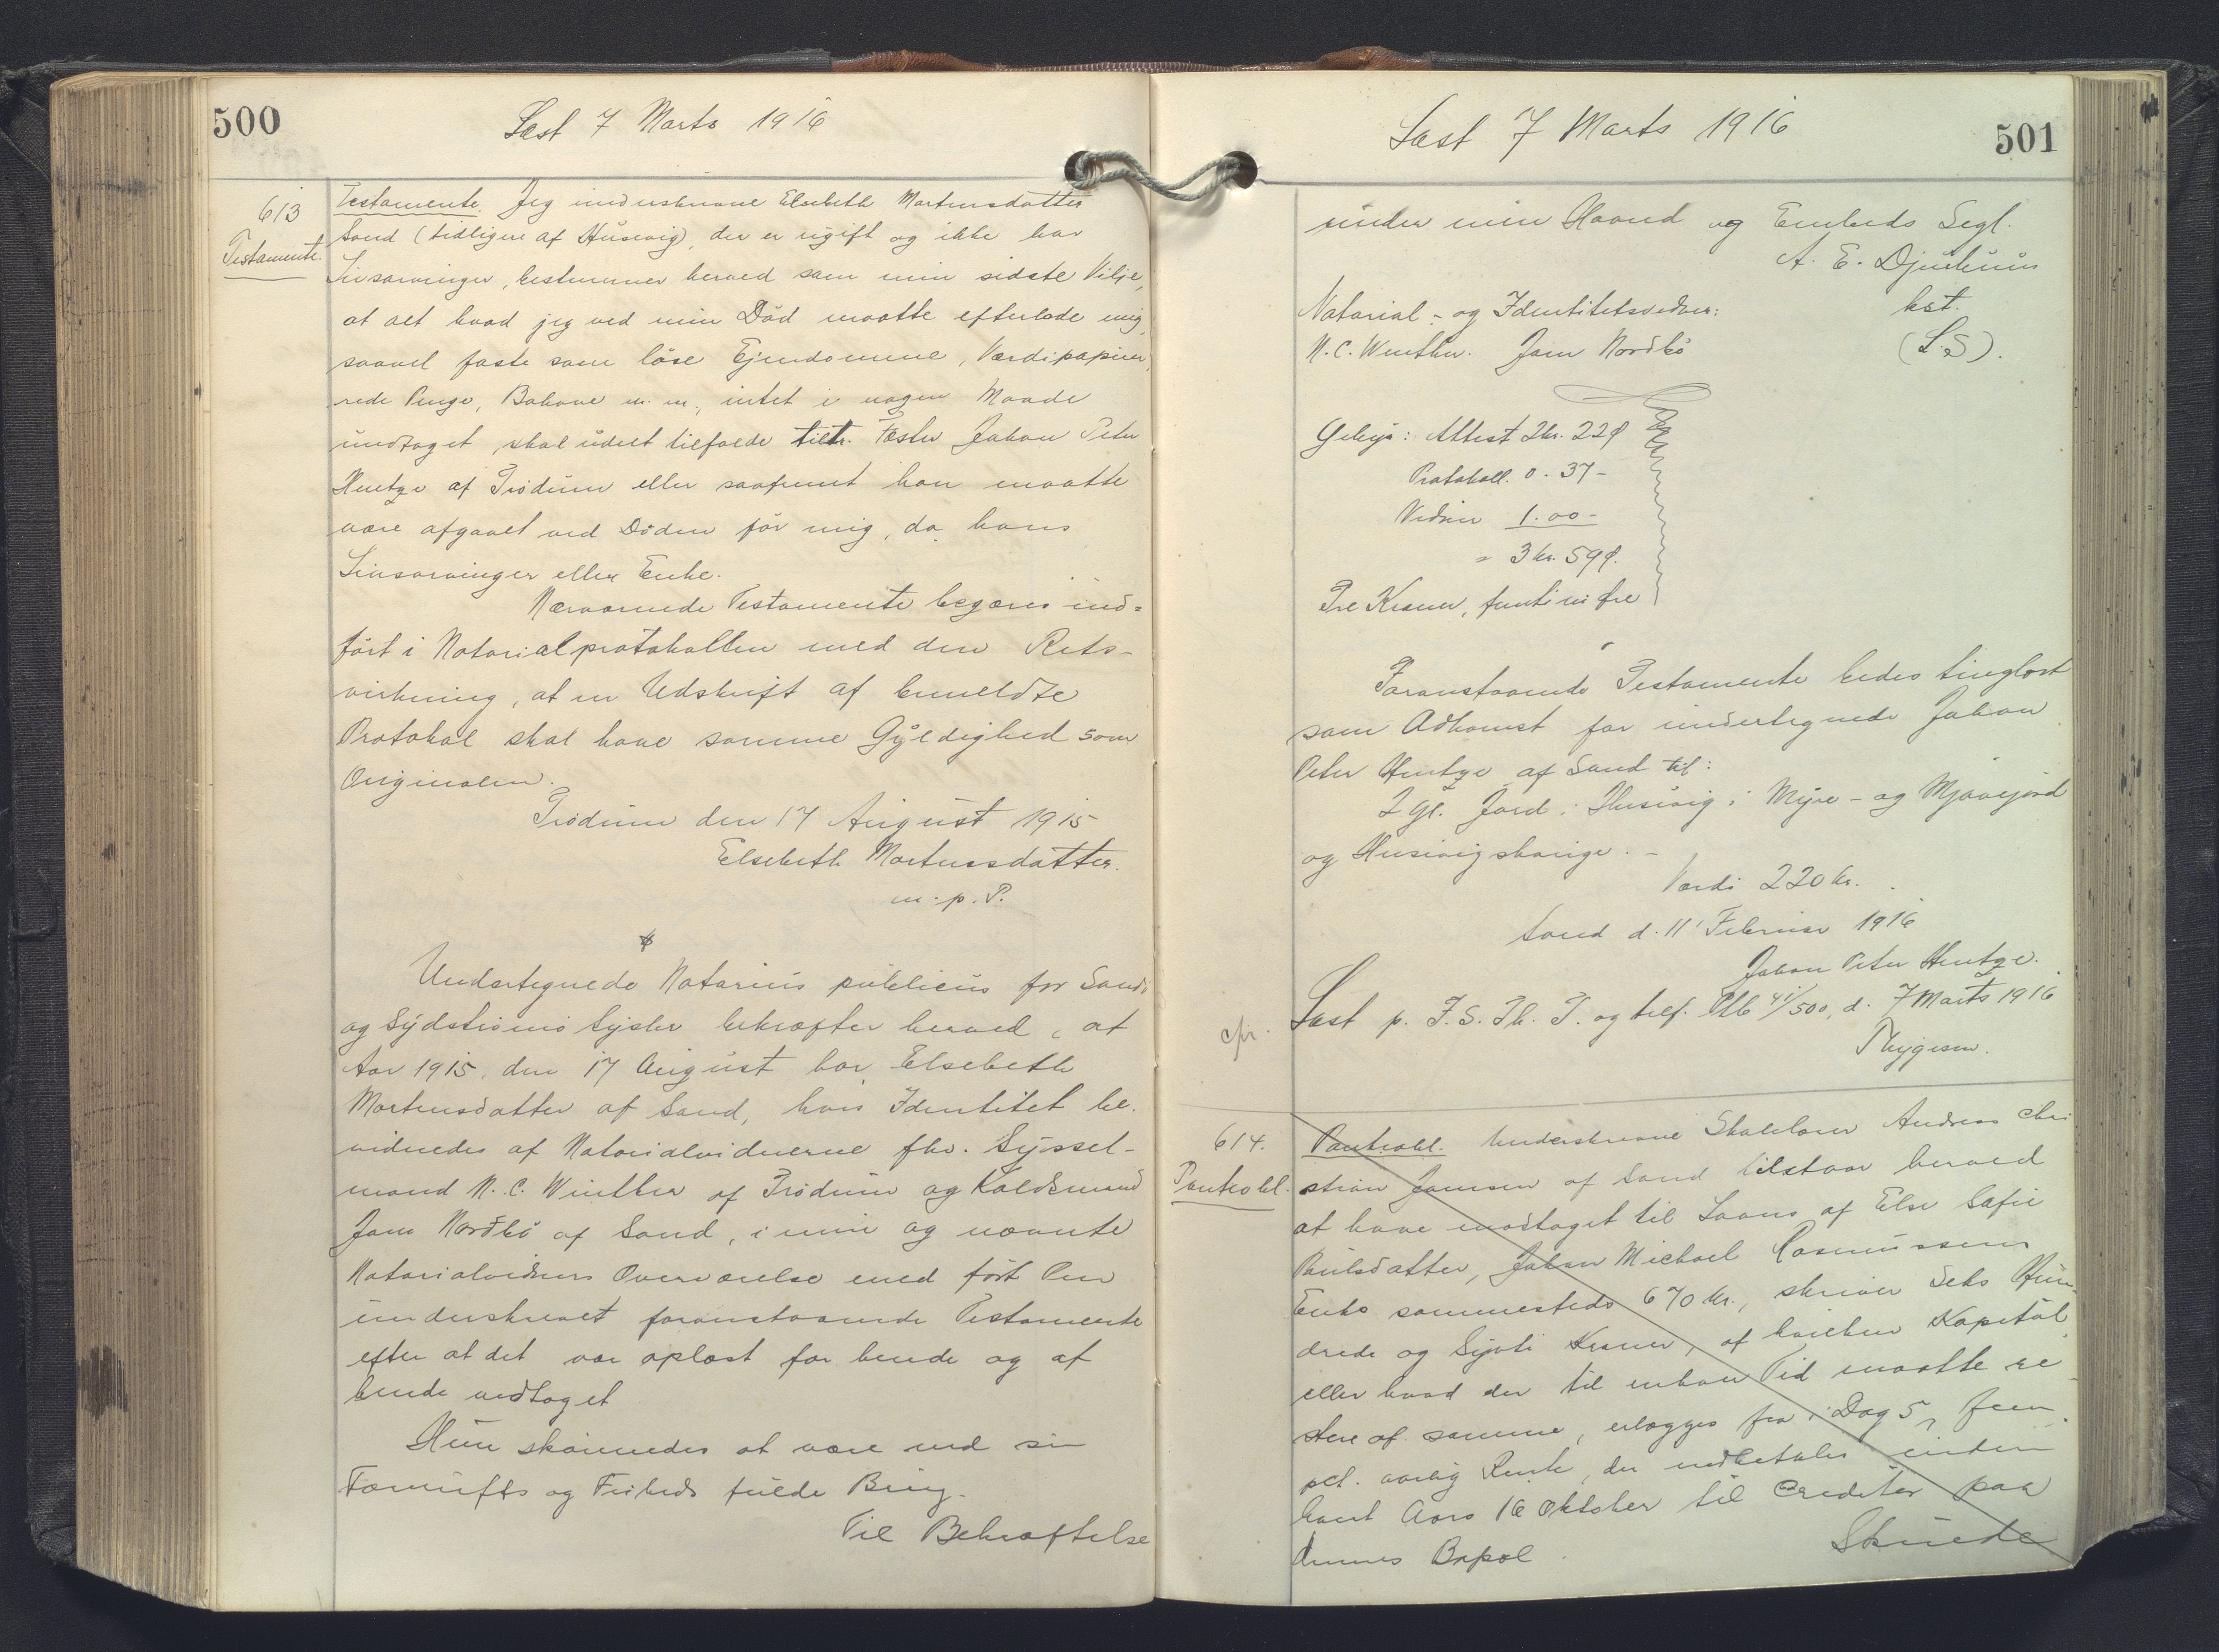 500
Læst 7 Marts 1916
613
Testamente.
Testamente. Jeg underskrevne Elsebeth Mortensdatter
Sand (tidligere af Húsevig), der er ugift og ikke har
Livsarvinger, bestemmer herved som min sidste Vilje,
at alt hvad jeg ved min Död maatte efterlade mig,
saavel faste som löse Ejendomme, Værdipapirer,
rede Penge, Bohave m. m., intet i nogen Maade
undtaget, skal udelt tilfalde Fæster Johan Peter
Hentze af Trödum eller saafremt han maatte
være afgaaet ved Döden för mig, da hans
Livsarvinger eller Enke.
Nærværende Testamente begæres ind=
fört i Notarialprotokollen med den Rets-
virkning, at en Udskrift af bemeldte
Protokol skal have samme Gyldighed som
Originalen.
Trödum den 17 August 1915
Elsebeth Mortensdatter.
m. p. P.
Undertegnede Notarius publicus for Sandö
og Sydströmö Sysler bekræfter herved, at
Aar 1915, den 17 August har Elsebeth
Mortensdatter af Sand, hvis Identitet be-
vidnedes af Notarialvidnerne fhv. Syssel-
mand N. C. Winther af Trödum og Kaldsmand
Jam Nordbö af Sand, i min og nævnte
Notarialvidners Overværelse med fört Pen
underskrevet foranstaaende Testamente
efter at det var oplæst for hende og af
hende vedtaget
Hun skönnedes at være ved sin
Fornufts og Friheds fulde Brug.
Til Bekræftelse
Læst 7 Marts 1916
501
under min Haand og Embeds Segl.
A. E. Djurhuus
Notarial- og Identitetsvidner:
kst.
N. C. Winther. Jam Nordbö
(L.S).
Gebyr: Attest 2kr. 22ø
Protokoll. 0. 37-
Vidner 1.00-
= 3 kr. 59ø.
Tre Kroner, femti ni Øre
Foranstaaende Testamente bedes tinglæst
som Adkomst for undertegnede Johan
Peter Hentze af Sand til:
2 Gl. Jord i Husevig i Myre- og Mjaavejord
og Husevigshauge.-
Værdi 220 kr.
Sand d. 11' Februar 1916
Johan Peter Hentze.
cfr.
Læst p. F. S. Th. T. og tilf. 41/500, d. 7 Marts 1916
Thygesen.
614.
Panteobl.
Panteobl. Underskrevne Skolelærer Andreas Chri
stian Joensen af Sand tilstaar herved
at have modtaget til Laans af Else Sofie
Poulsdatter, Johan Michael Rasmussens
Enke sammesteds 670 Kr., skriver Seks Hun
drede og Syvti Kroner, af hvilken Kapital
eller hvad der til enhver Tid maatte re
stere af samme, erlægges fra i Dag 5, fem
pct. aarlig Rente, der indbetales inden
hvert Aars 16 Oktober til Creditor paa
dennes Bopæl
Skulde